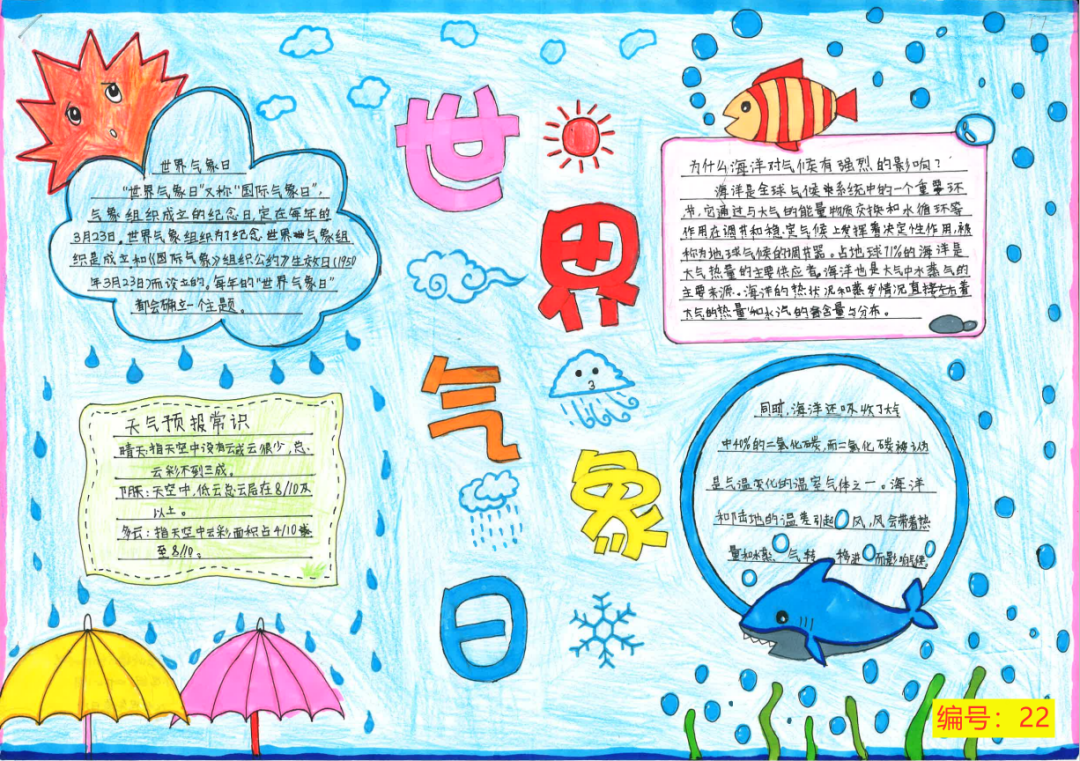 世界气象日
世界气象日
"世界气象日"又称"国际气象日",
气象组织成立的纪念日,定在每年的
3月23日。世界气象组织为了纪念世界气象组
织是成立和《国际气象》组织公约》生效日(1950
年3月23日)而设立的。每年的"世界气象日"
都会确立一个主题。
天气预报常识
晴天:指天空中没有云或云很少,总
云彩不到三成。
阴天:天空中,低云总云层在8/10及
以上。
多云:指天空中云彩面积占4/10
至8/10。
为什么海洋对气候有强烈的影响?
海洋是全球气候系统中的一个重要环
节,它通过与大气的能量物质交换和水循环等
作用在调节和稳定气候上发挥着决定性作用,被
称为地球气候的调节器。占地球71%的海洋是
大气热量的主要供应者。海洋也是大气中水蒸气的
主要来源。海洋的热状况和蒸发情况直接左右着
大气的热量和水汽的含量与分布。
同时,海洋还吸收了大气
中40%的二氧化碳,而二氧化碳被认为
是气温变化的温室气体之一。海洋
和陆地的温差引起 风,风会带着热
量和水蒸 气转 移进 而影响气候
编号:22